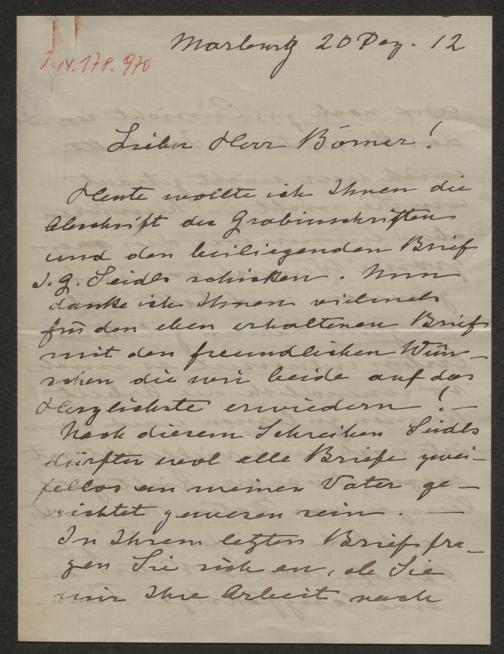 Marburg 20 Dez. 12
I.N. 178.970
Lieber Herr Börner!
Heute wollte ich Ihnen die
Abschrift der Grabinschriften
und den beiliegenden Brief
J. G. Seidls schicken. Nun
danke ich Ihnen vielmals
für den eben erhaltenen Brief
mit den freundlichen Wün-
schen die wir beide auf das
Herzlichste erwiedern! –
Nach diesem Schreiben Seidls
dürften wol alle Briefe zwei-
fellos an meinen Vater ge-
richtet gewesen sein. –
In Ihrem letzten Brief fra-
gen Sie sich an, ob Sie
mir Ihre Arbeit nach